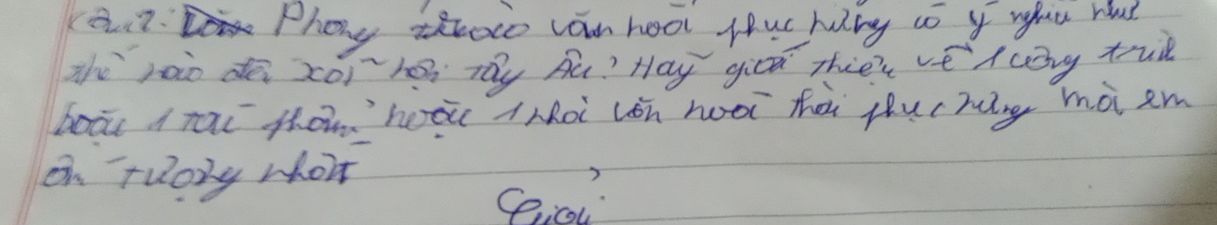 Câu 2: Phong trào văn hoá phục hưng có ý nghĩa như
thế nào đến xã hội Tây Âu? Hãy giới thiệu về 1 công trình
hoặc 1 tác phẩm hoặc 1 nhà văn hoá thời phục hưng mà em
ấn tượng nhất
Giải